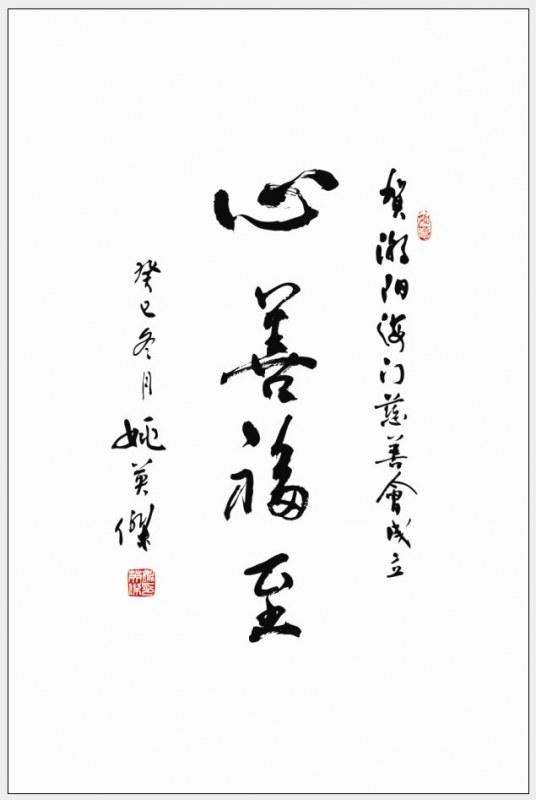 贺潮阳海门慈善會成立
心善福至
癸巳冬月
姚英傑